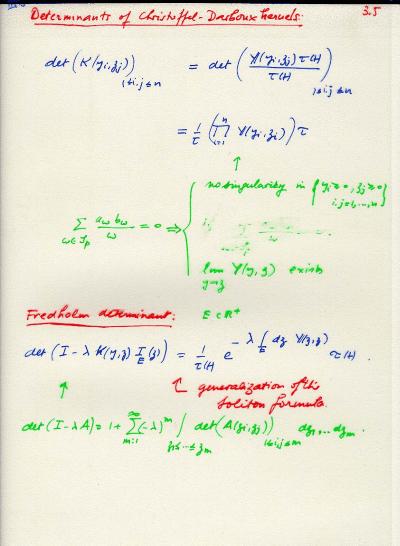 Determinants of Christoffel-Darboux kernels: 3.5
det (K(y_i, z_j))_{1≤i,j≤n} = det ( 𝕐(y_i, z_j) τ(t) / τ(t) )_{1≤i,j≤n}
= 1/τ ( ∏_{i=1}^{n} 𝕐(y_i, z_i) ) τ
↑
no singularity in { y_i ≥ 0, z_j ≥ 0
i,j=1,...,n }
∑_{ω∈J_p} a_ω b_ω / ω = 0 ⇒ {
lim_{y→z} 𝕐(y, z) exists
Fredholm determinant: E ⊂ ℝ⁺
det (I - λ K(y,z) I_E(z)) = 1/τ(t) e^{-λ ∫_E dz 𝕐(z,z)} τ(t).
↑ ↖ generalization of the
soliton formula.
det (I - λA) = 1 + ∑_{m=1}^{∞} (-λ)^m ∫_{z_1≤...≤z_m} det(A(z_i, z_j))_{1≤i,j≤m} dz_1 ... dz_m.